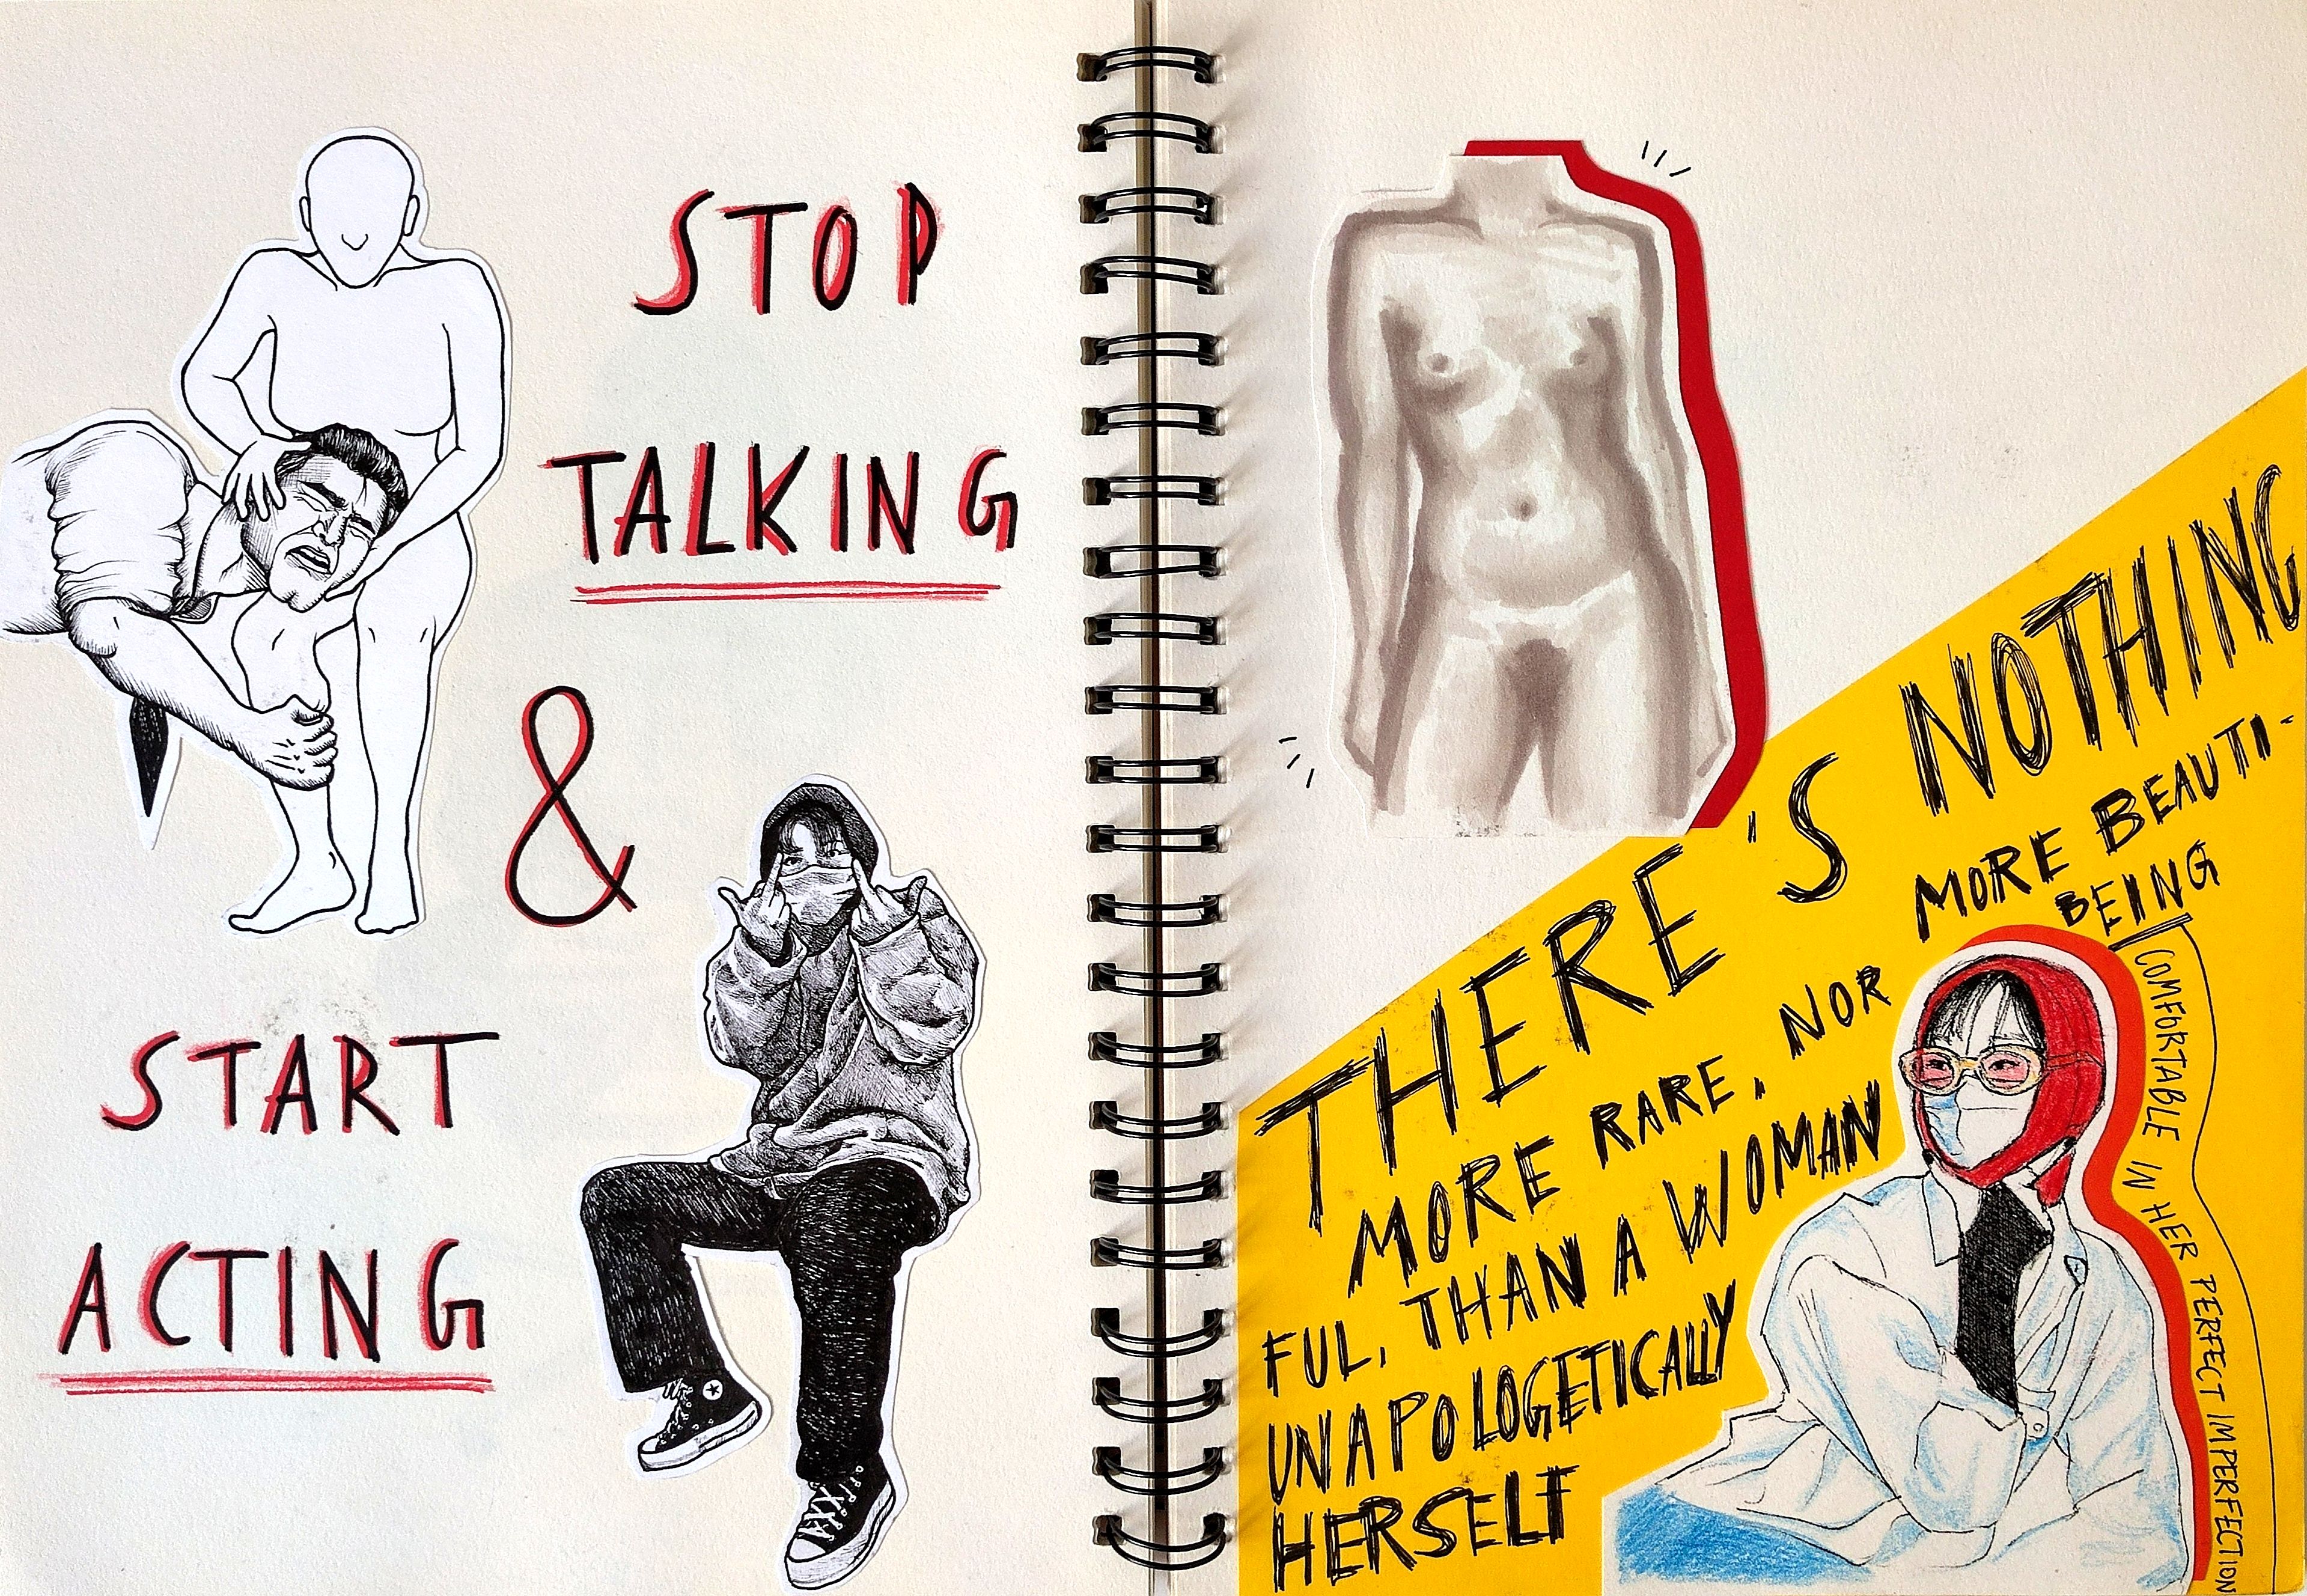 STOP
TALKING
&
START
ACTING
THERE'S NOTHING
MORE RARE, NOR MORE BEAUTI-
FUL, THAN A WOMAN BEING
UNAPOLOGETICALLY
HERSELF
COMFORTABLE IN HER PERFECT IMPERFECTION